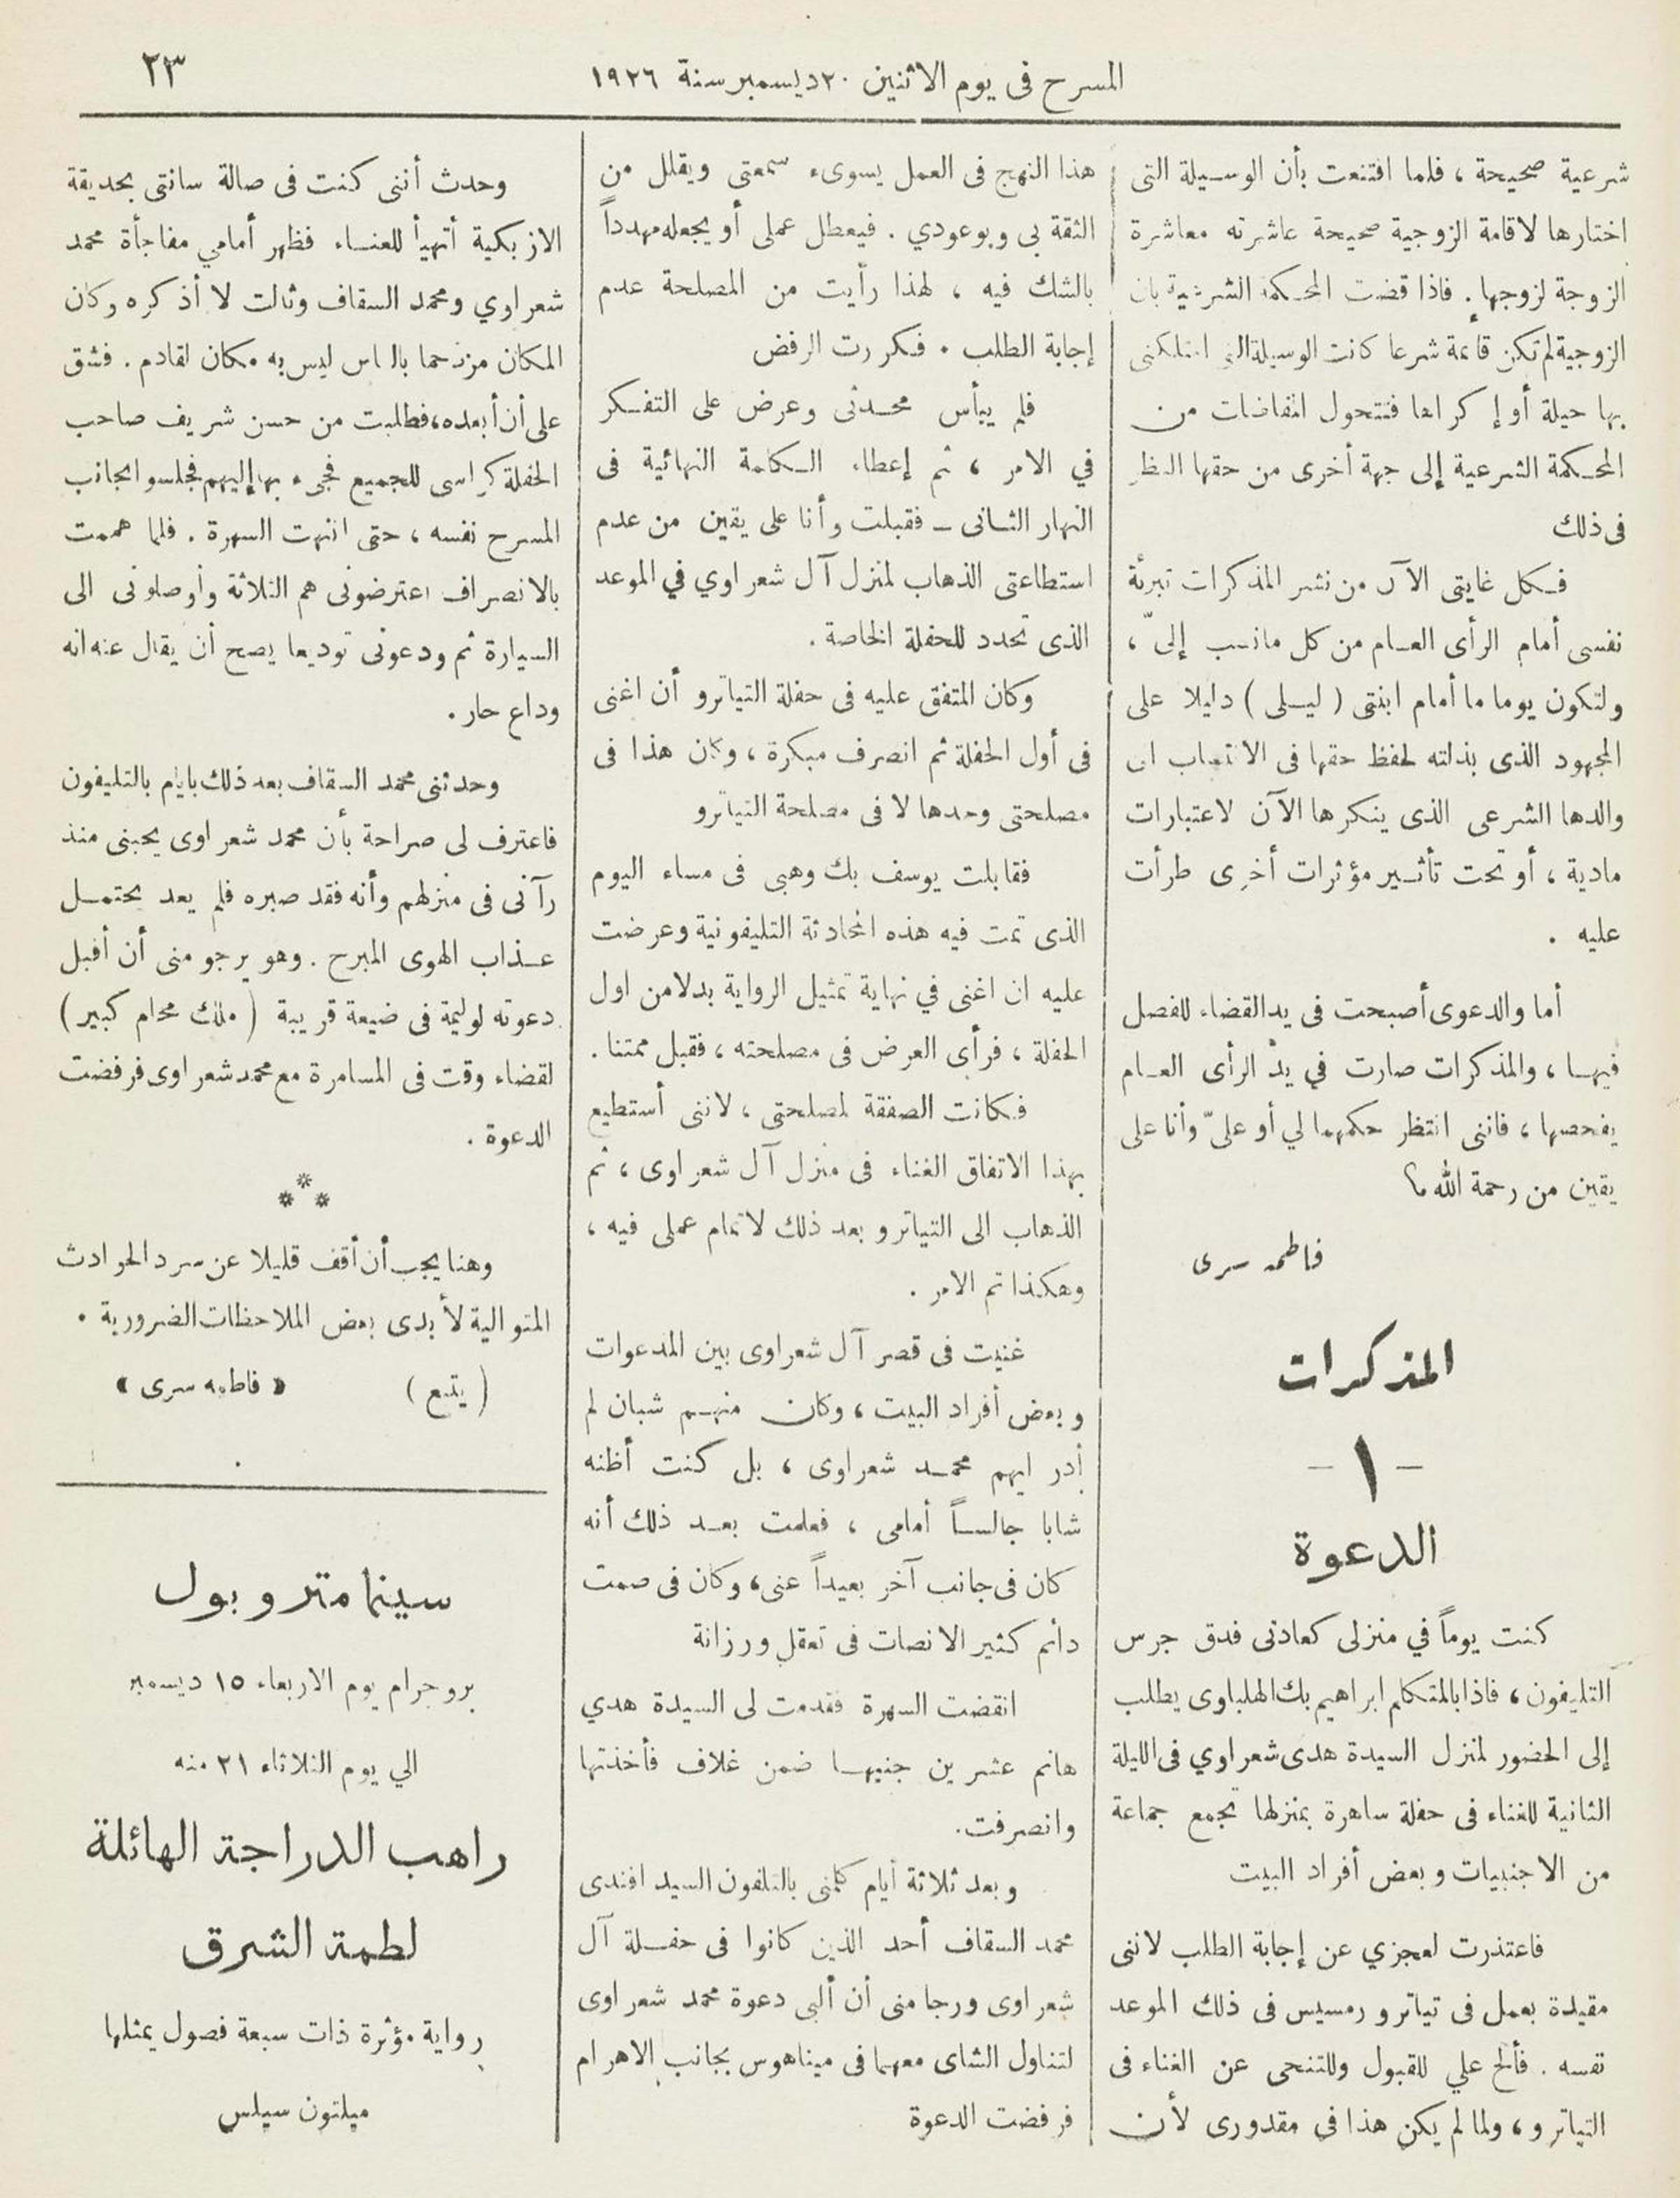 المسرح فى يوم الاثنين ٢٠ ديسمبر سنة ١٩٢٦
٢٣
شرعية صحيحة ، فلما اقتنعت بأن الوسيلة التى
اختارها لاقامة الزوجية صحيحة عاشرته معاشرة
الزوجة لزوجها . فاذا قضت المحكمة الشرعية بان
الزوجية لم تكن قائمة شرعا كانت الوسيلة التى امتلكنى
بها حيلة أو إكراها فتتحول اتفاضات من
المحكمة الشرعية إلى جهة أخرى من حقها النظر
فى ذلك
فكل غايتى الآن من نشر المذكرات تبرئة
نفسى أمام الرأى العام من كل مانسب إلىّ ،
ولتكون يوما ما أمام ابنتى ( ليلى ) دليلا على
المجهود الذى بذلته لحفظ حقها فى الانتساب الى
والدها الشرعى الذى ينكرها الآن لاعتبارات
مادية ، أو تحت تأثير مؤثرات أخرى طرأت
عليه .
أما والدعوى أصبحت فى يد القضاء للفصل
فيها ، والمذكرات صارت في يد الرأى العام
يفحصها ، فاننى انتظر حكمهما لي أو علىّ وأنا على
يقين من رحمة الله ؟
فاطمه سرى
المذكرات
— ١ —
الدعوة
كنت يوماً في منزلى كعادتى فدق جرس
التليفون ، فاذا بالمتكلم ابراهيم بك الهلباوى يطلب
إلى الحضور لمنزل السيدة هدى شعراوي فى الليلة
الثانية للغناء فى حفلة ساهرة بمنزلها تجمع جماعة
من الاجنبيات وبعض أفراد البيت
فاعتذرت لعجزي عن إجابة الطلب لاننى
مقيدة بعمل فى تياترو رمسيس فى ذلك الموعد
نفسه . فألح علي للقبول وللتنحى عن الغناء فى
التياترو ، ولما لم يكن هذا فى مقدورى لأن
هذا النهج فى العمل يسوىء سمعتى ويقلل من
الثقة بى وبوعودي . فيعطل عملى أو يجعله مهدداً
بالشك فيه ، لهذا رأيت من المصلحة عدم
إجابة الطلب . فكررت الرفض
فلم ييأس محدثى وعرض على التفكر
في الامر ، ثم إعطاء الكامة النهائية فى
النهار الثانى ــ فقبلت وأنا على يقين من عدم
استطاعتى الذهاب لمنزل آل شعراوي في الموعد
الذى تحدد للحفلة الخاصة .
وكان المتفق عليه فى حفلة التياترو أن اغنى
فى أول الحفلة ثم انصرف مبكرة ، وكان هذا فى
مصلحتى وحدها لا فى مصلحة التياترو
فقابلت يوسف بك وهبى فى مساء اليوم
الذى تمت فيه هذه المحادثة التليفونية وعرضت
عليه ان اغنى في نهاية تمثيل الرواية بدلا من اول
الحفلة ، فرأى العرض فى مصلحته ، فقبل ممتنا .
فكانت الصفقة لمصلحتى ، لاننى أستطيع
بهذا الاتفاق الغناء فى منزل آل شعراوى ، ثم
الذهاب الى التياترو بعد ذلك لاتمام عملى فيه ،
وهكذا تم الامر .
غنيت فى قصر آل شعراوى بين المدعوات
وبعض أفراد البيت ، وكان منهم شبان لم
أدر ايهم محمد شعراوى ، بل كنت أظنه
شابا جالساً أمامى ، فعلمت بعد ذلك أنه
كان فى جانب آخر بعيداً عنى ، وكان فى صمت
دائم كثير الانصات فى تعقل ورزانة
انقضت السهرة فقدمت لى السيدة هدي
هانم عشرين جنيها ضمن غلاف فأخذتها
وانصرفت .
وبعد ثلاثة أيام كلمنى بالتلفون السيد افندى
محمد السقاف أحد الذين كانوا فى حفلة آل
شعراوى ورجا منى أن ألبى دعوة محمد شعراوى
لتناول الشاى معهما فى ميناهوس بجانب الاهرام
فرفضت الدعوة
وحدث أننى كنت فى صالة سانتى بحديقة
الازبكية أتهيأ للغناء فظهر أمامي مفاجأة محمد
شعراوي ومحمد السقاف وثالث لا أذكره وكان
المكان مزدحما بالناس ليس به مكان لقادم . فشق
على أن أبعده ، فطلبت من حسن شريف صاحب
الحفلة كراسى للجميع فجىء بها إليهم فجلسوا بجانب
المسرح نفسه ، حتى انتهت السهرة . فلما هممت
بالانصراف اعترضونى هم الثلاثة وأوصلونى الى
السيارة ثم ودعونى توديعا يصح أن يقال عنه انه
وداع حار .
وحدثنى محمد السقاف بعد ذلك بايام بالتليفون
فاعترف لى صراحة بأن محمد شعراوى يحبنى منذ
رآنى فى منزلهم وأنه فقد صبره فلم يعد يحتمل
عذاب الهوى المبرح . وهو يرجو منى أن أقبل
دعوته لوليمة فى ضيعة قريبة ( ملك محام كبير )
لقضاء وقت فى المسامرة مع محمد شعراوى فرفضت
الدعوة .
***
وهنا يجب أن أقف قليلا عن سرد الحوادث
المتوالية لأبدى بعض الملاحظات الضرورية .
( يتبع ) « فاطمه سرى »
سينما متروبول
بروجرام يوم الاربعاء ١٥ ديسمبر
الي يوم الثلاثاء ٢١ منه
راهب الدراجة الهائلة
لطمة الشرق
رواية مؤثرة ذات سبعة فصول يمثلها
ميلتون سيلس